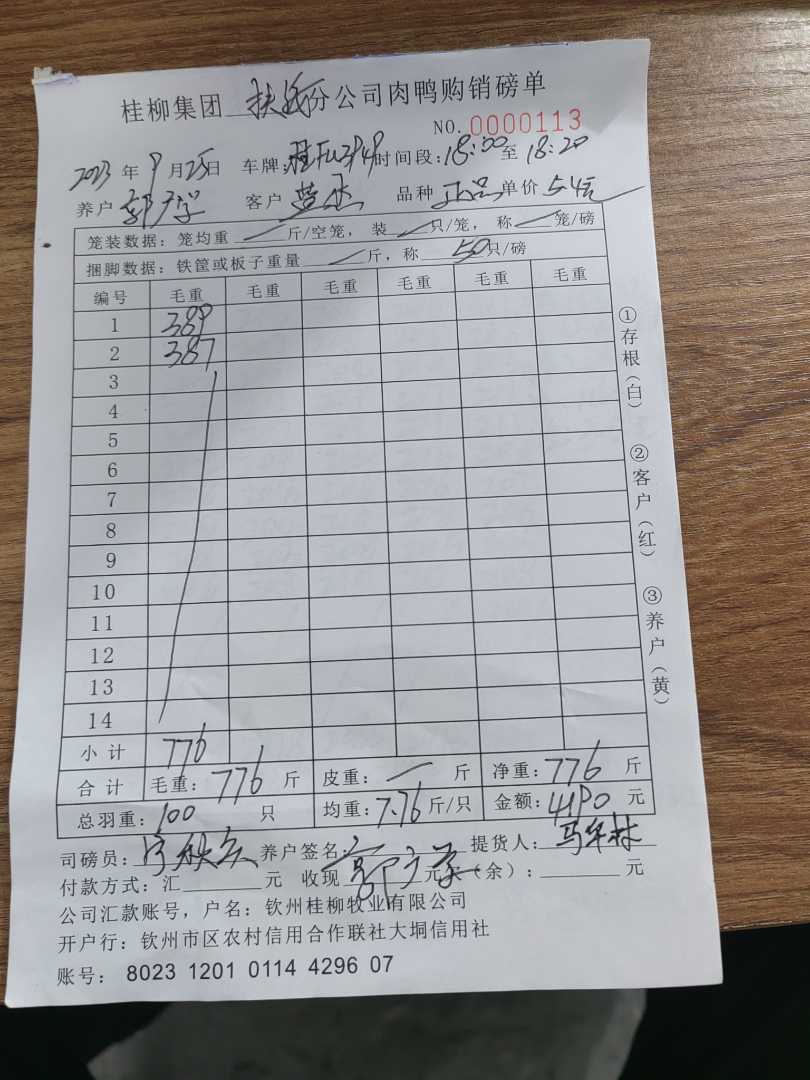 桂柳集团 扶绥 分公司肉鸭购销磅单
NO. 0000113
2023 年 9 月 25 日 车牌: 时间段: 18:00 至 18:20
养户 客户 品种 正品 单价 5.4元
笼装数据: 笼均重 斤/空笼, 装 只/笼, 称 笼/磅
捆脚数据: 铁筐或板子重量 斤, 称 50 只/磅
编号 毛重 毛重 毛重 毛重 毛重 毛重
1 389
2 387
3
4
5
6
7
8
9
10
11
12
13
14
小计 776
合计 毛重: 776 斤 皮重: 斤 净重: 776 斤
总羽重: 100 只 均重: 7.76 斤/只 金额: 4190 元
司磅员: 养户签名: 提货人:
付款方式: 汇 元 收现 元 (余): 元
公司汇款账号, 户名: 钦州桂柳牧业有限公司
开户行: 钦州市区农村信用合作联社大垌信用社
账号: 8023 1201 0114 4296 07
①存根(白)
②客户(红)
③养户(黄)